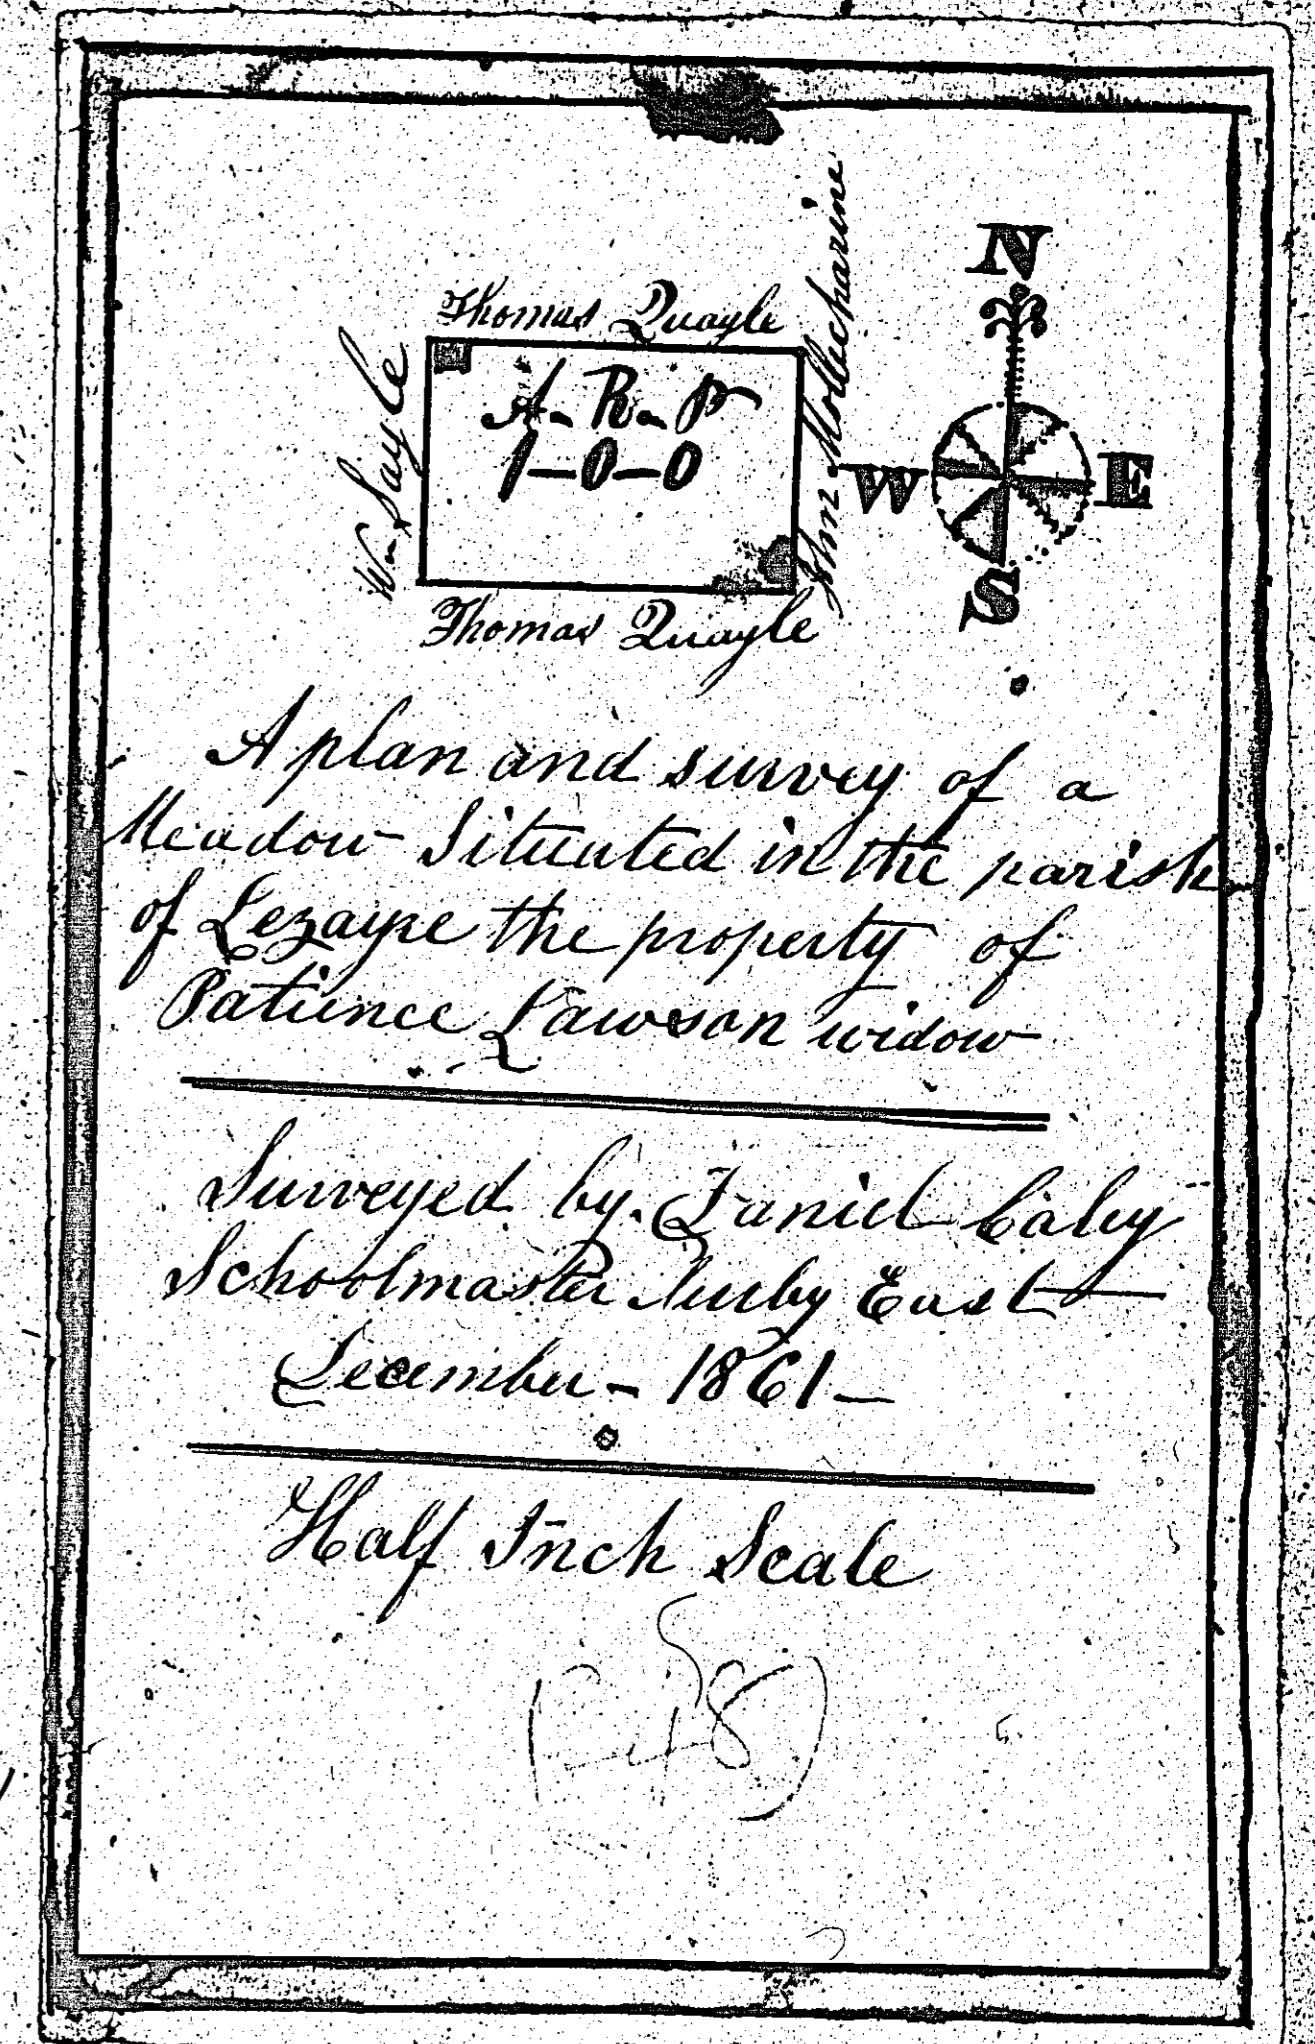 Thomas Quayle
Wm Sayle
A. R. P
1-0-0
John
Thomas Quayle
N
W
E
S
A plan and survey of a
Meadow Situated in the parish
of Lezayre the property of
Patience Lawson widow
Surveyed by Daniel Caley
Schoolmaster East
December - 1861 -
Half Inch Scale